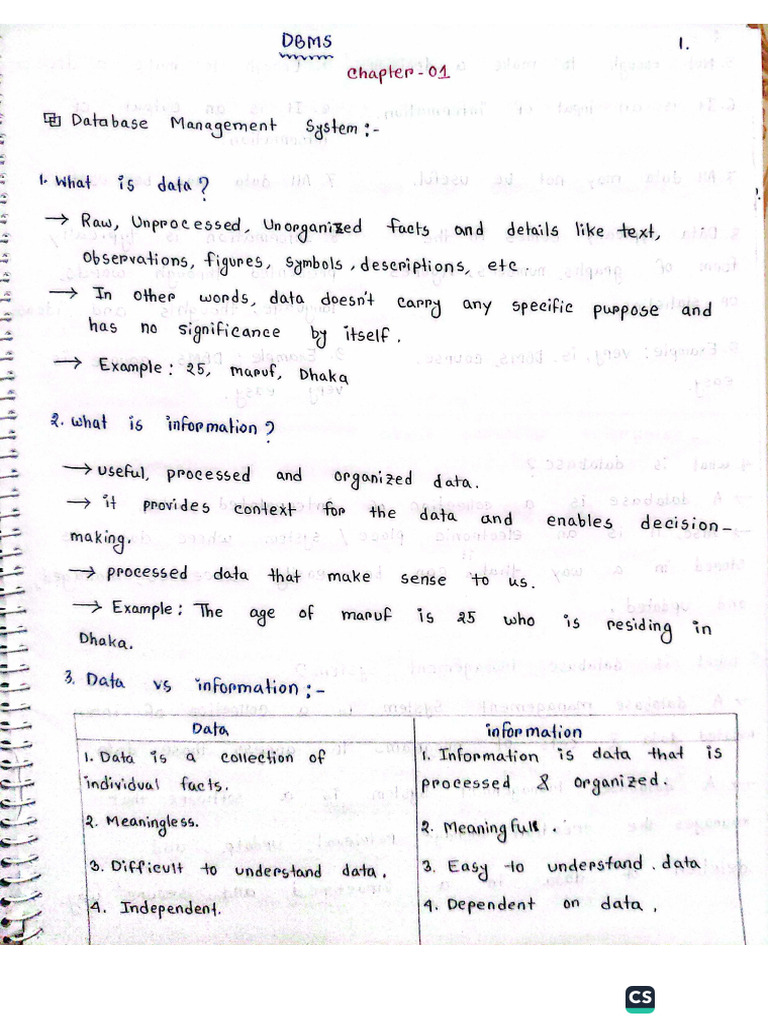 DBMS
1.
Chapter-01
Database Management System:-
1. What is data?
→ Raw, Unprocessed, Unorganized facts and details like text,
observations, figures, symbols, descriptions, etc.
→ In other words, data doesn't carry any specific purpose and
has no significance by itself.
→ Example: 25, maruf, Dhaka
2. What is information?
→ useful, processed and organized data.
→ it provides context for the data and enables decision-
making.
→ processed data that make sense to us.
→ Example: The age of maruf is 25 who is residing in
Dhaka.
3. Data vs information:-
Data
information
1. Data is a collection of
individual facts.
1. Information is data that is
processed & organized.
2. Meaningless.
2. Meaningfull.
3. Difficult to understand data.
3. Easy to understand. data
4. Independent.
4. Dependent on data.
CS